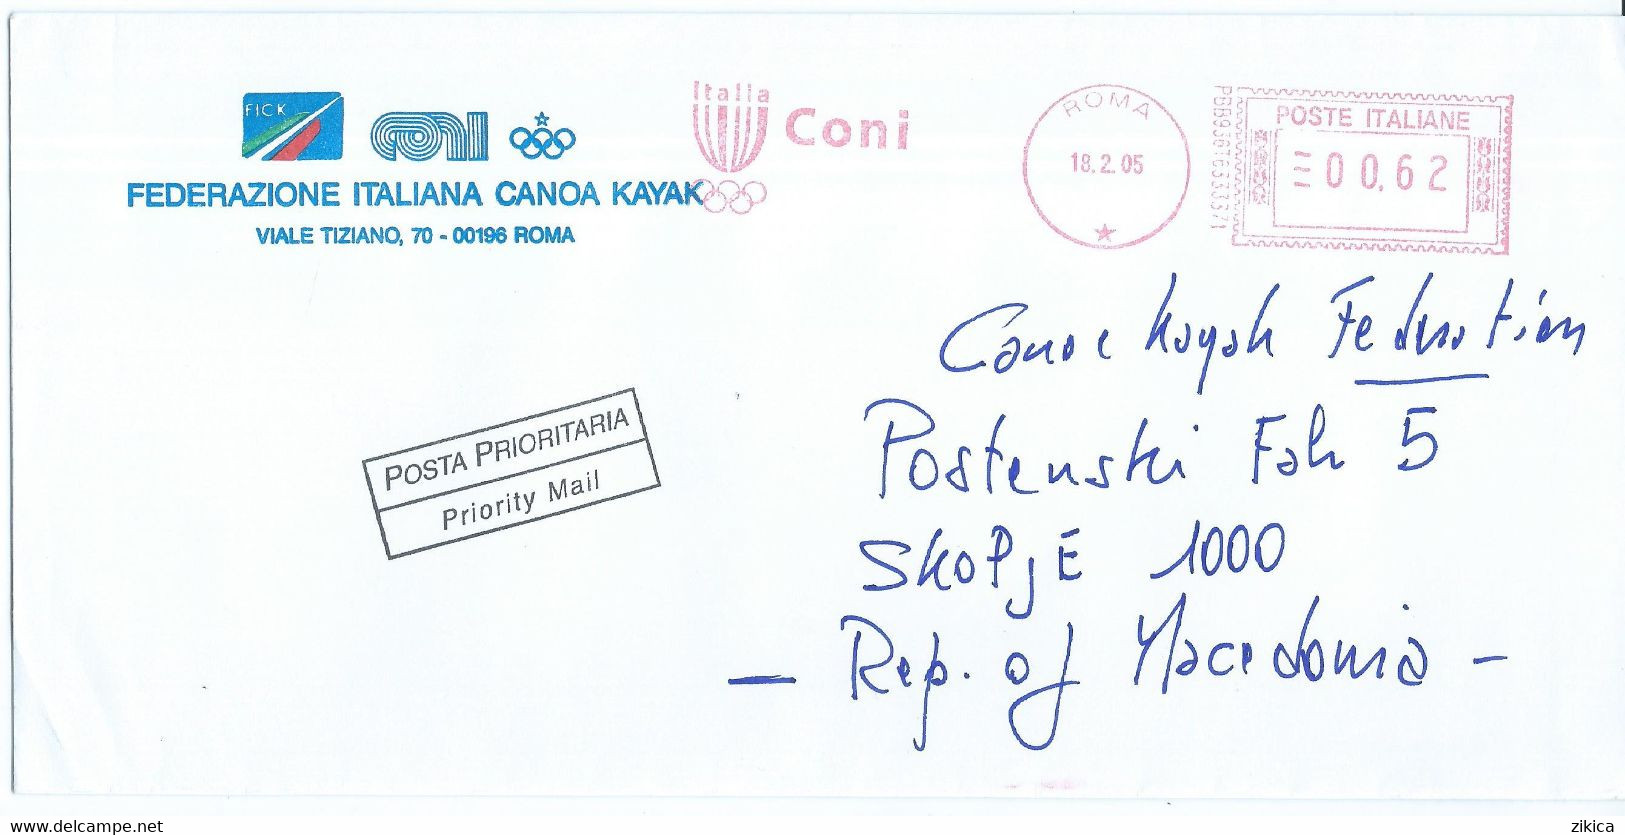 FICK
CONI
FEDERAZIONE ITALIANA CANOA KAYAK
VIALE TIZIANO, 70 - 00196 ROMA
Italia
Coni
ROMA
18.2.05
POSTE ITALIANE
≡00,62
POSTA PRIORITARIA
Priority Mail
Canoe Kayak Federation
Postenski Fah 5
SKOPJE 1000
— Rep. of Macedonia -
www.delcampe.net
zikica